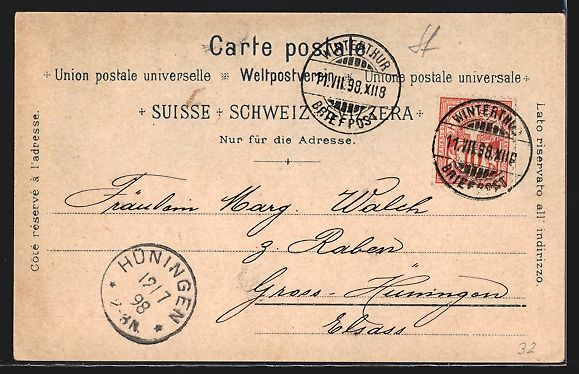 Carte postale
Union postale universelle Weltpostverein Unione postale universale
SUISSE SCHWEIZ SVIZZERA
Nur für die Adresse.
WINTERTHUR
11.VII.98.XII8
BRIEFPOST
WINTERTHUR
11.VII.98.XII8
BRIEFPOST
Côté réservé à l'adresse.
Lato riservato all'indirizzo.
Fräulein Marg. Walch
z. Raben
Gross-Hüningen
Elsass
HÜNINGEN
12/7
98
2-3N.
32